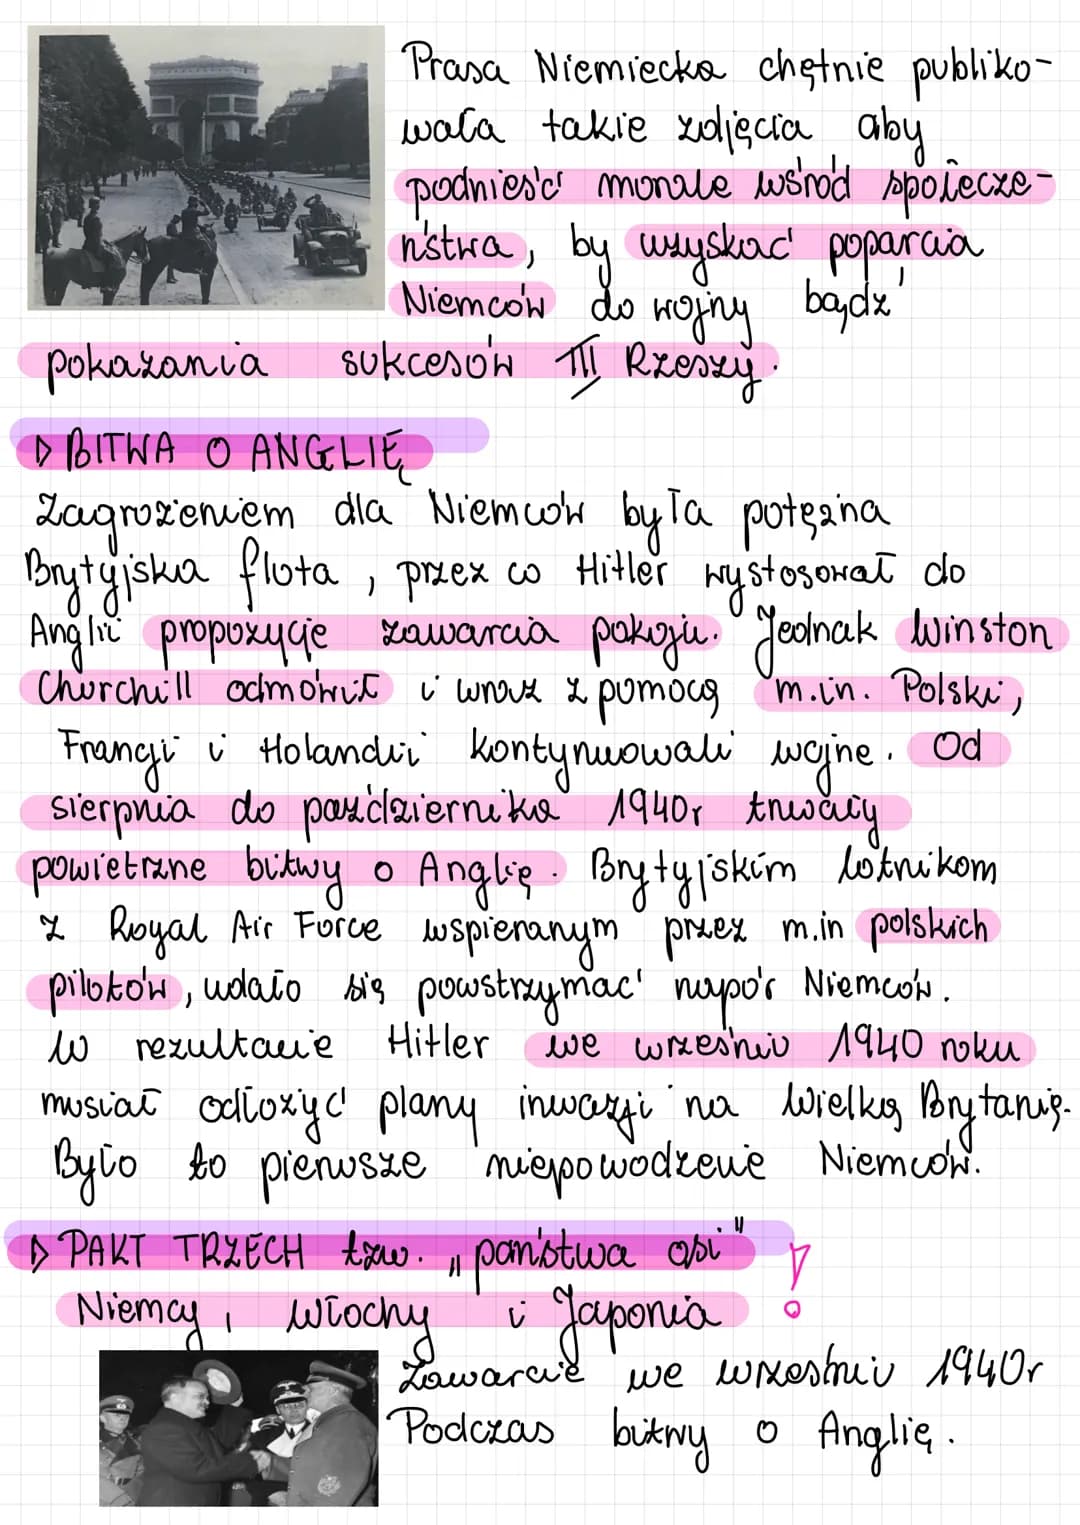 Prasa Niemiecka chętnie publiko-
wała takie zdjęcia aby
podnieść morale wśród społecze-
ństwa, by uzyskać poparcia
Niemców do wojny bądź
pokazania sukcesów III Rzeszy.
▷ BITWA O ANGLIĘ
Zagrożeniem dla Niemców była potężna
Brytyjska flota, przez co Hitler wystosował do
Anglii propozycje zawarcia pokoju. Jednak Winston
Churchill odmówił i wraz z pomocą m.in. Polski,
Francji i Holandii kontynuowali wojne. Od
sierpnia do października 1940r trwały
powietrzne bitwy o Anglię. Brytyjskim lotnikom
z Royal Air Force wspieranym przez m.in polskich
pilotów, udało się powstrzymać napór Niemców.
W rezultacie Hitler we wrześniu 1940 roku
musiał odłożyć plany inwazji na Wielką Brytanię.
Było to pierwsze niepowodzenie Niemców.
▷ PAKT TRZECH tzw. „państwa osi" !
Niemcy, Włochy i Japonia
Zawarcie we wrześniu 1940r
Podczas bitwy o Anglię.